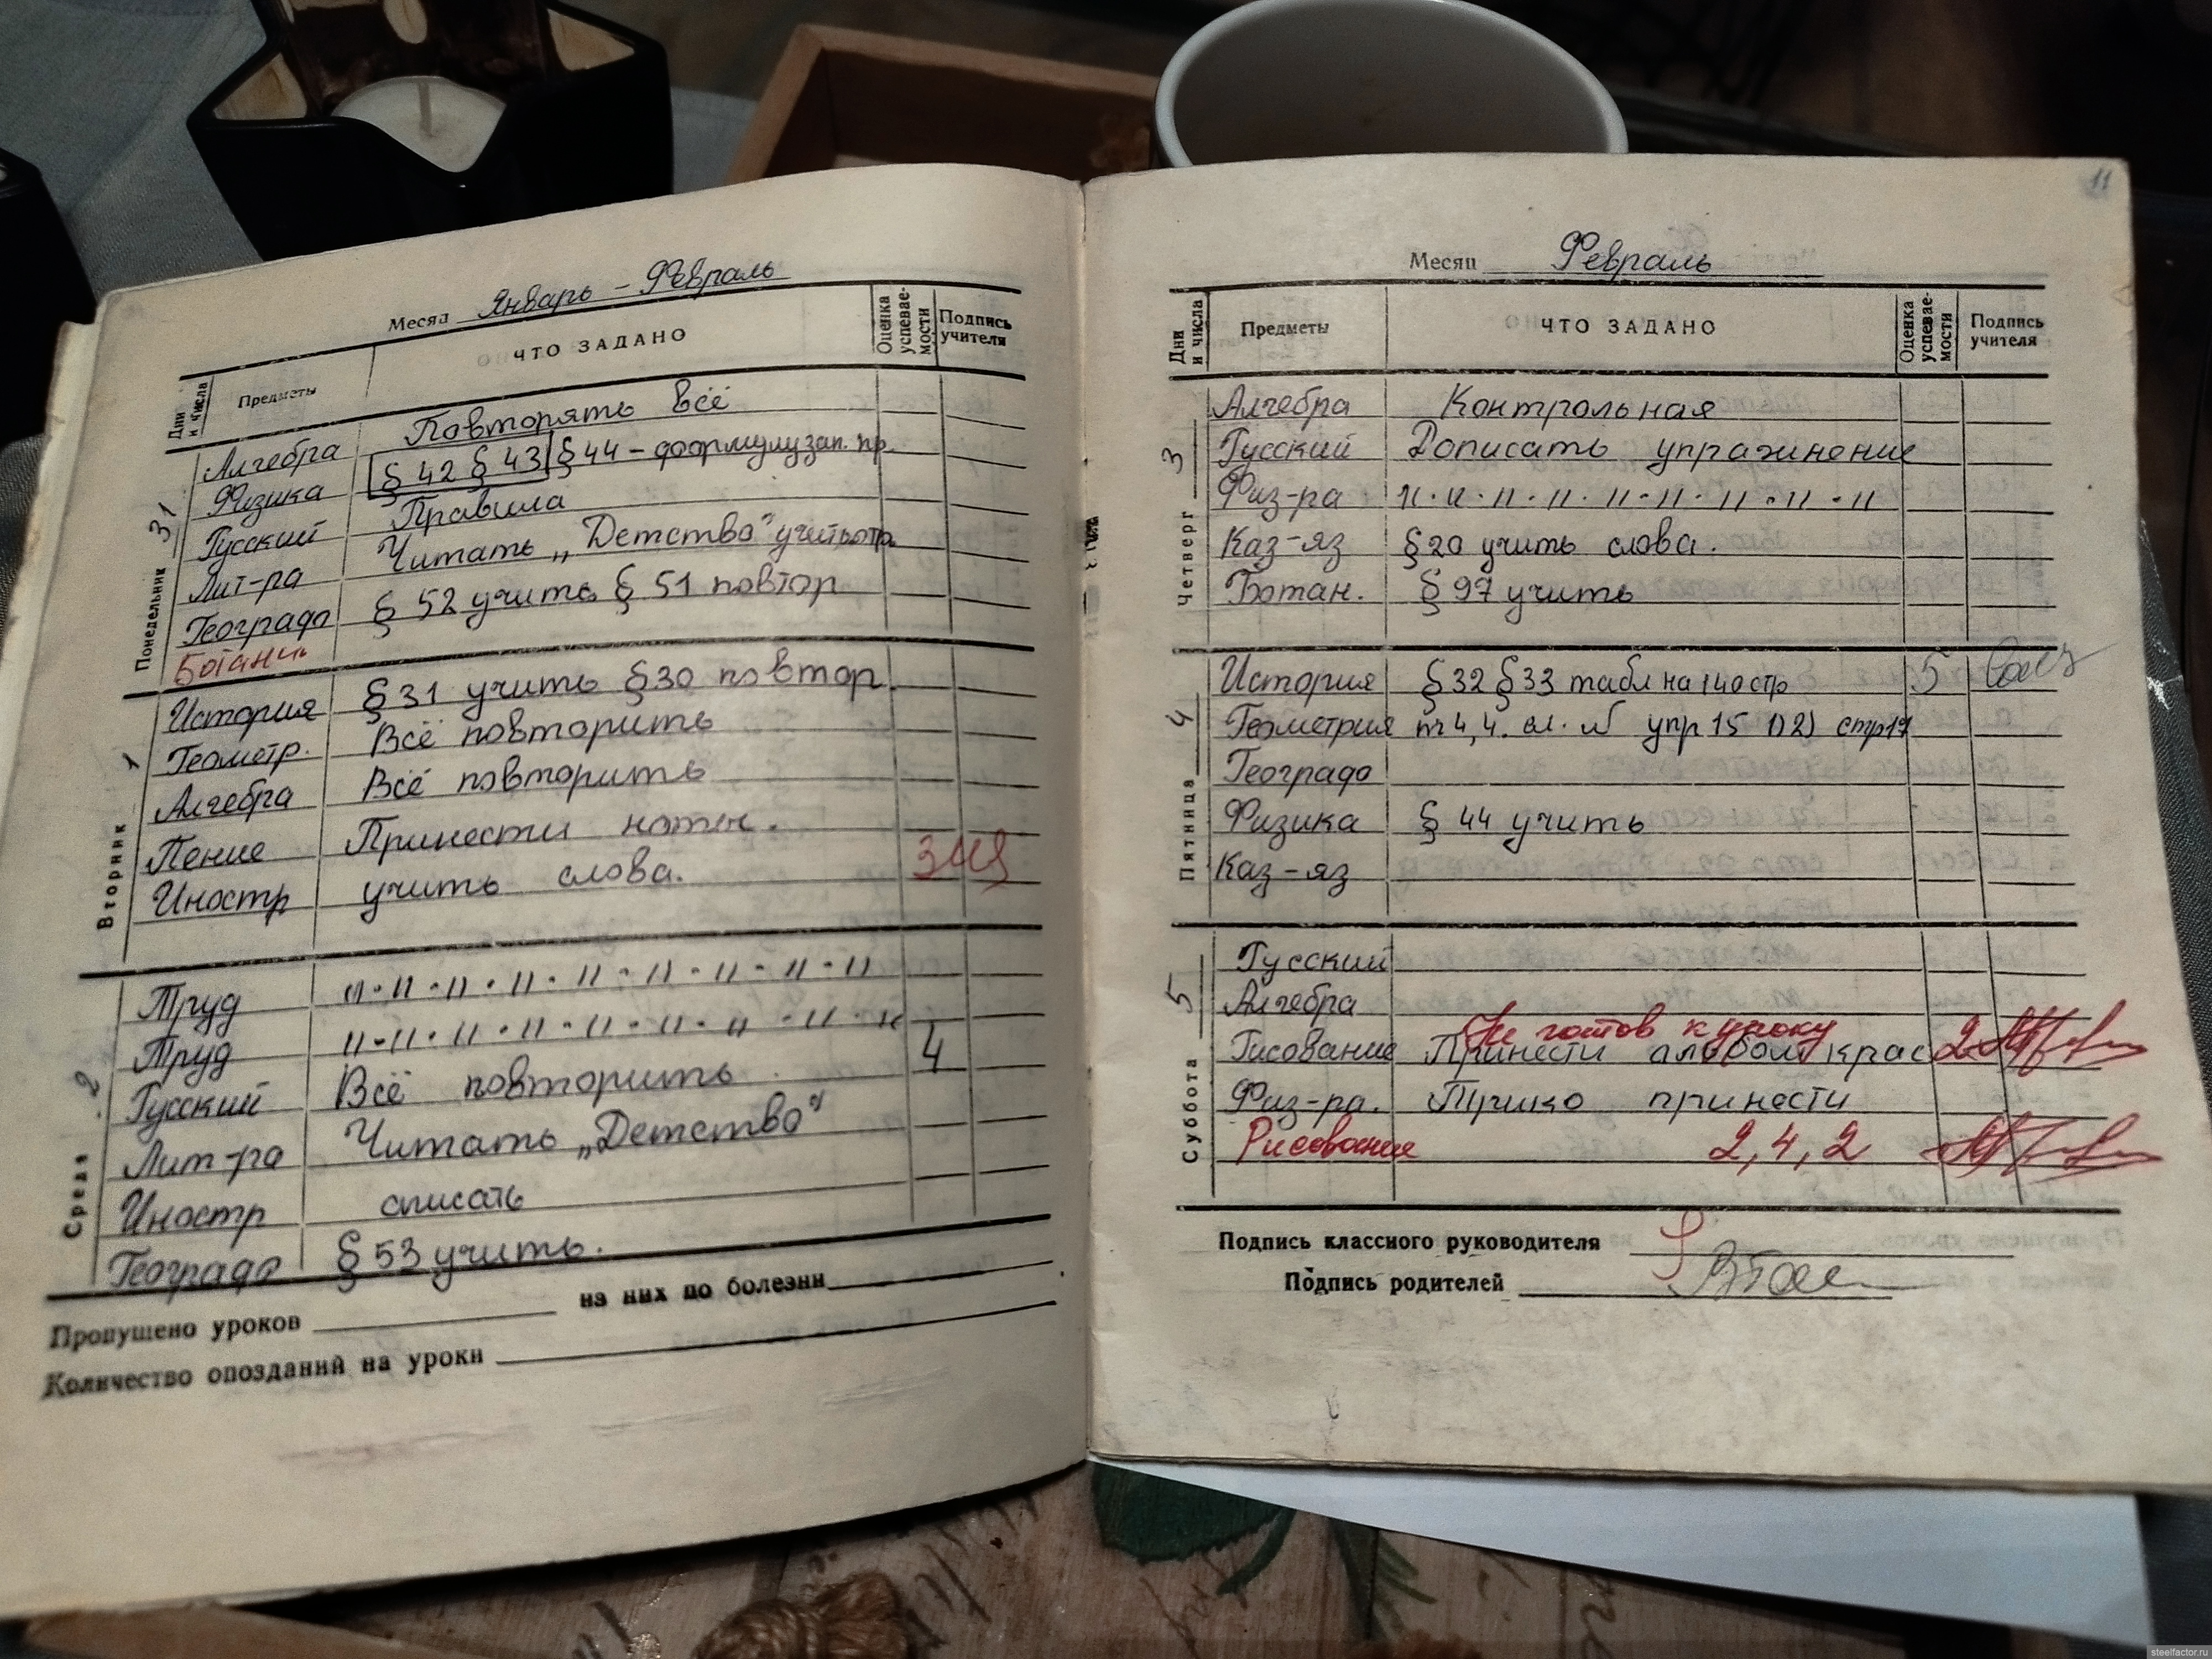 Месяц Январь - Февраль
Дни и числа Предметы ЧТО ЗАДАНО Оценка успевае-мости Подпись учителя
Понедельник 31
Алгебра Повторять всё
Физика § 42 § 43 § 44 - формулу зап. пр.
Русский Правила
Лит-ра Читать „Детство" учить
Геогрaф § 52 учить § 51 повтор
Ботани
Вторник 1
История § 31 учить § 30 повтор.
Геометр. Всё повторить
Алгебра Всё повторить
Пение Принести ноты.
Иностр учить слова. 3
Среда 2
Труд 11 · 11 · 11 · 11 · 11 · 11 · 11 · 11 · 11
Труд 11 · 11 · 11 · 11 · 11 · 11 · 11 · 11 · 11
Русский Всё повторить 4
Лит-ра Читать „Детство"
Иностр списать
Географ § 53 учить.
Пропущено уроков из них по болезни
Количество опозданий на уроки
11
Месяц Февраль
Дни и числа Предметы ЧТО ЗАДАНО Оценка успевае-мости Подпись учителя
Четверг 3
Алгебра Контрольная
Русский Дописать упражинение
Физ-ра 11 · 11 · 11 · 11 · 11 · 11 · 11 · 11 · 11
Каз-яз § 20 учить слова.
Ботан. § 97 учить
Пятница 4
История § 32 § 33 табл на 140 стр 5
Геометрия 4,4. упр 15 1) 2) стр 17
Географ
Физика § 44 учить
Каз-яз
Суббота 5
Русский
Алгебра
Не готов к уроку
Рисование Принести альбом крас 2
Физ-ра. Трико принести
Рисование 2, 4, 2
Подпись классного руководителя
Подпись родителей
steelfactor.ru